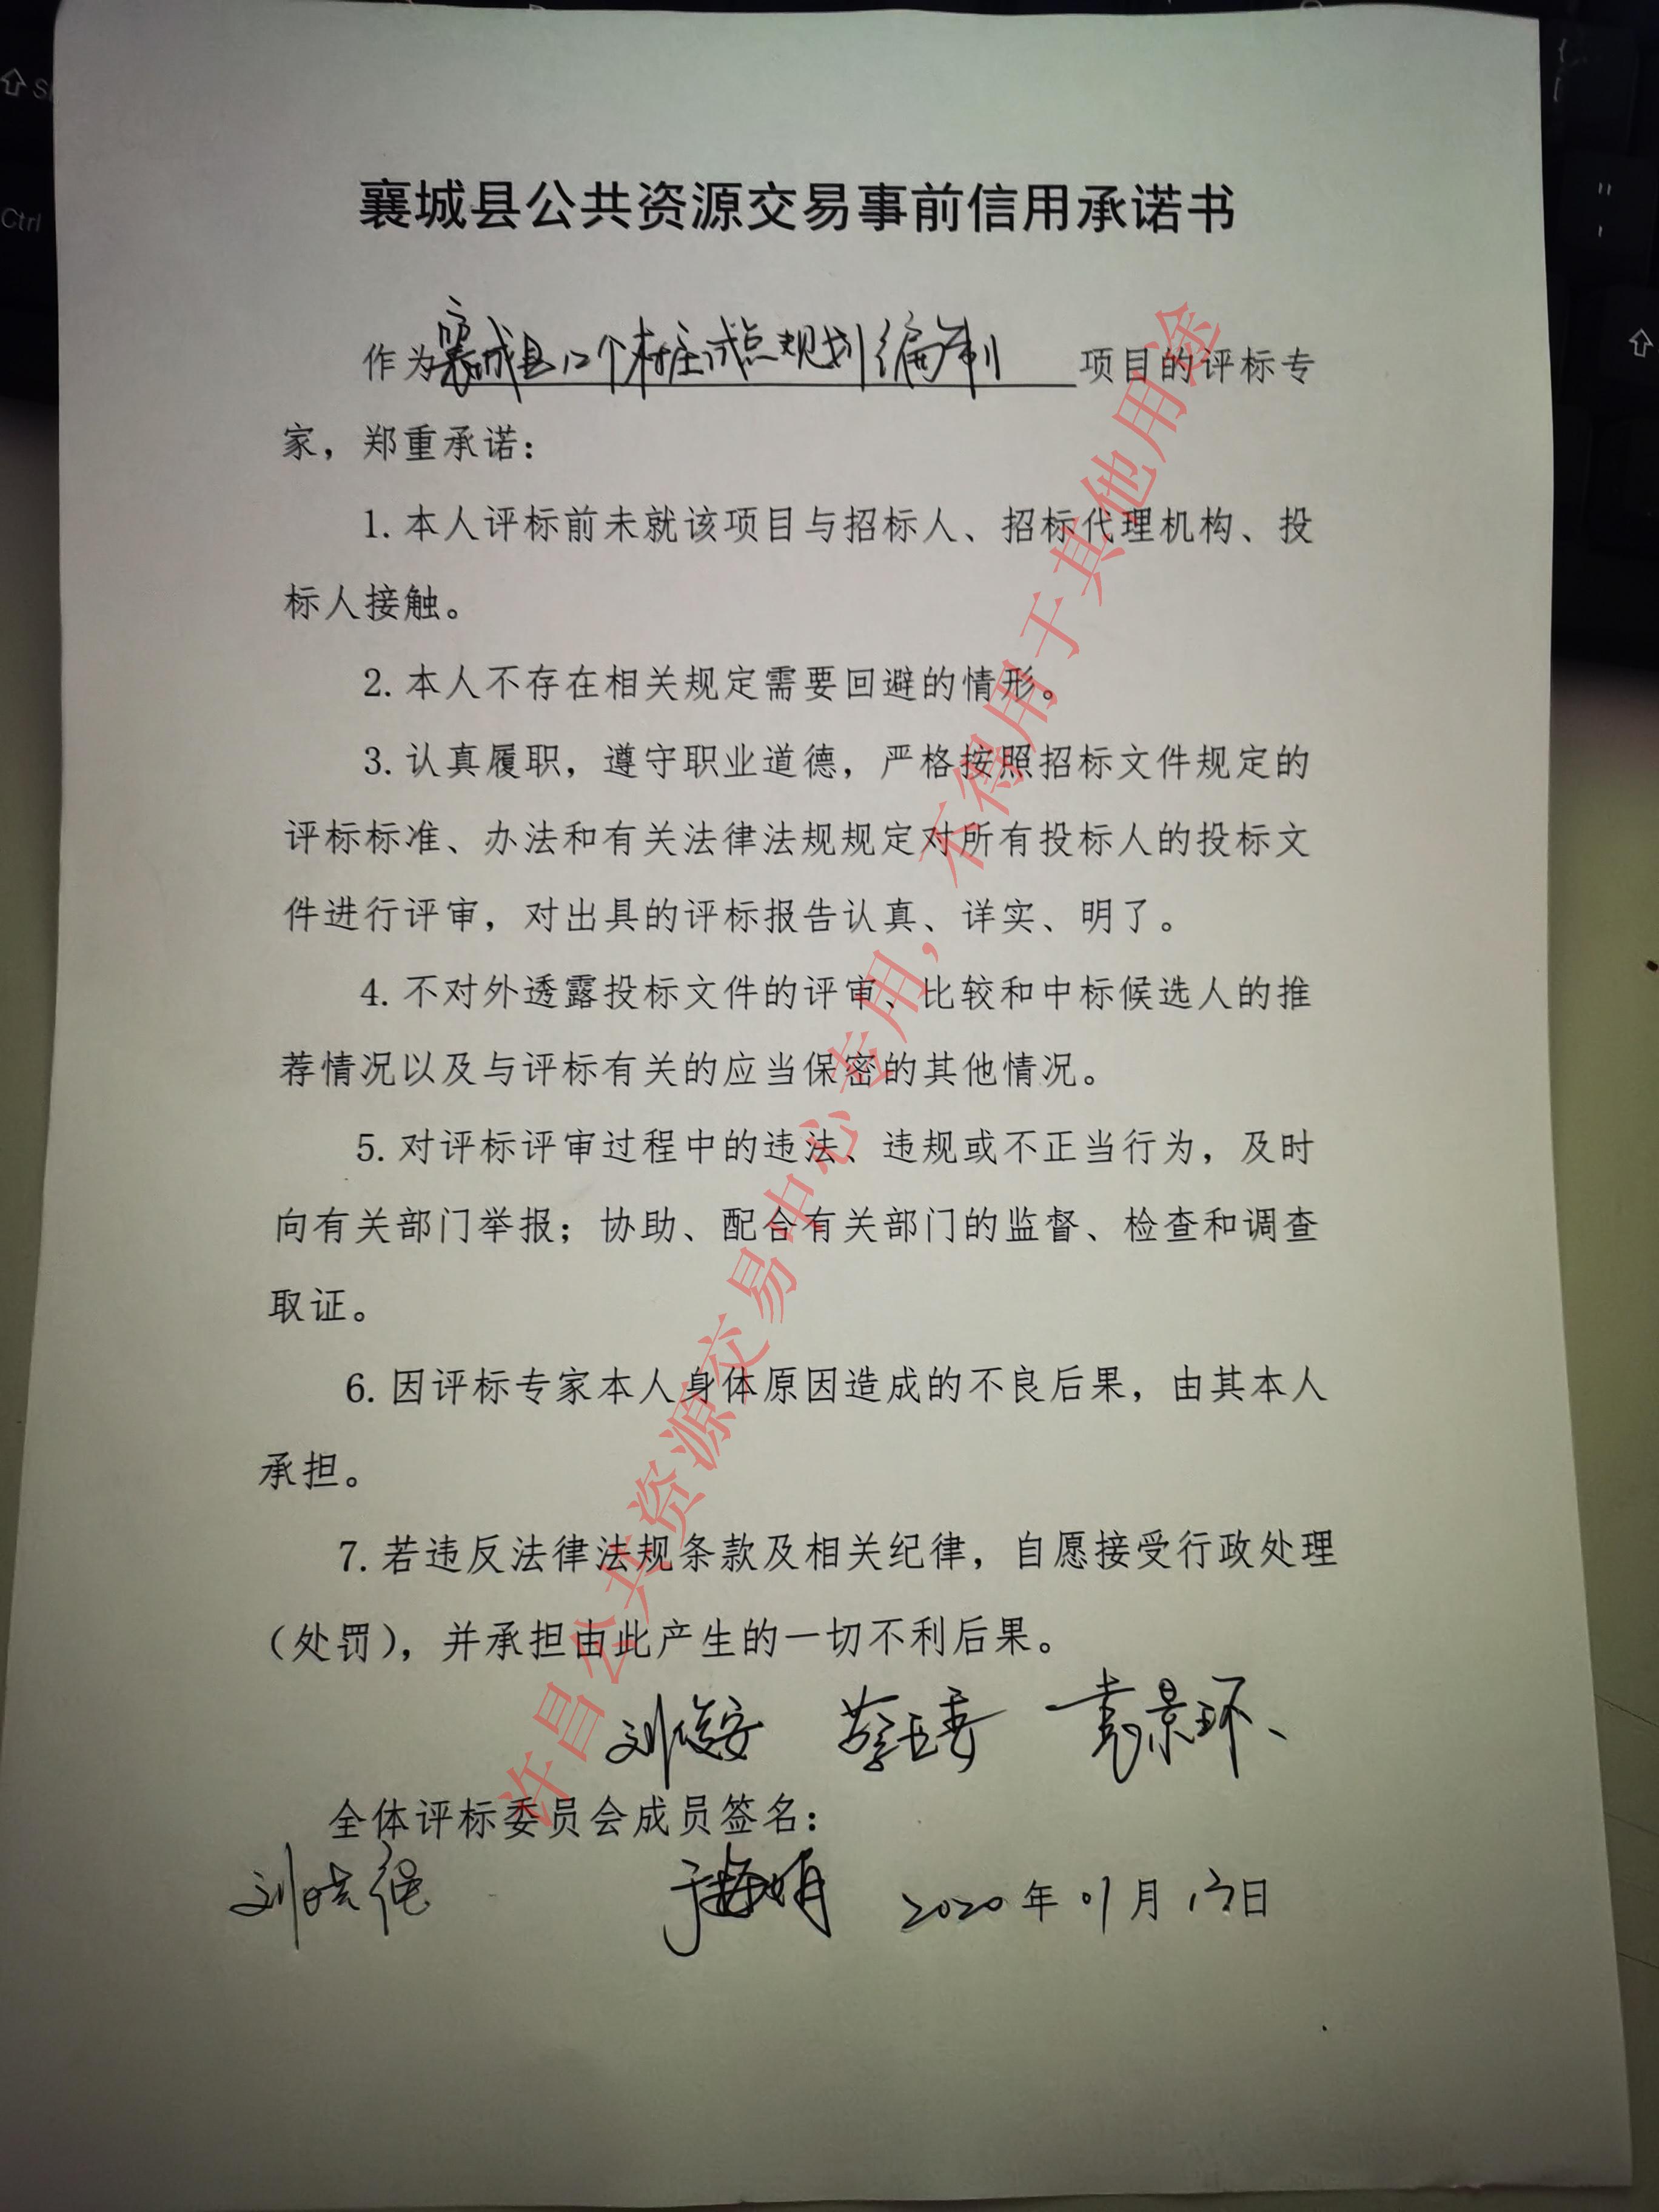 襄城县公共资源交易事前信用承诺书
作为襄城县12个村庄试点规划编制项目的评标专
家，郑重承诺：
1.本人评标前未就该项目与招标人、招标代理机构、投
标人接触。
2.本人不存在相关规定需要回避的情形。
3.认真履职，遵守职业道德，严格按照招标文件规定的
评标标准、办法和有关法律法规规定对所有投标人的投标文
件进行评审，对出具的评标报告认真、详实、明了。
4.不对外透露投标文件的评审、比较和中标候选人的推
荐情况以及与评标有关的应当保密的其他情况。
5.对评标评审过程中的违法、违规或不正当行为，及时
向有关部门举报；协助、配合有关部门的监督、检查和调查
取证。
6.因评标专家本人身体原因造成的不良后果，由其本人
承担。
7.若违反法律法规条款及相关纪律，自愿接受行政处理
（处罚），并承担由此产生的一切不利后果。
刘俊安 袁景环
全体评标委员会成员签名：
刘晓强 2020年01月13日
许昌公共资源交易中心专用，不得用于其他用途
Ctrl